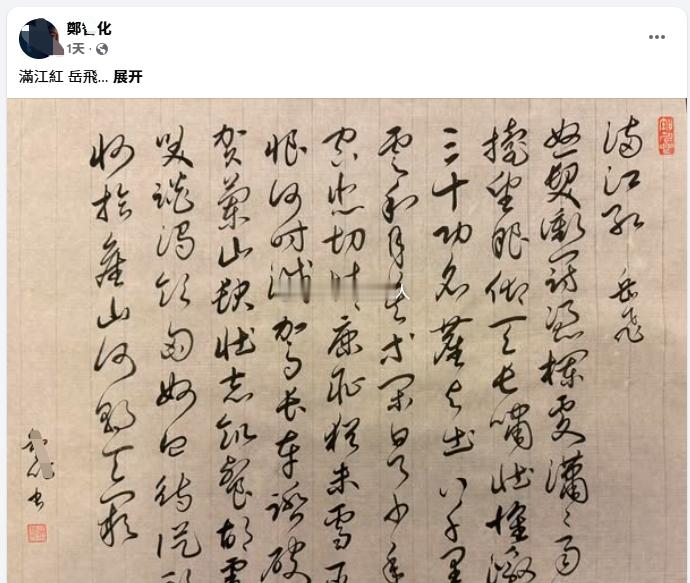 鄭 化
1天
滿江紅 岳飛... 展开
滿江紅 岳飛
怒髮衝冠憑欄處瀟瀟雨
擡望眼仰天長嘯壯懷激
三十功名塵與土八千里
雲和月莫等閒白了少年
空悲切 康恥猶未雪
恨何時滅駕長車踏破
賀蘭山缺壯志飢餐胡虜
笑談渴飲匈奴血待從頭
收拾舊山河朝天闕
書